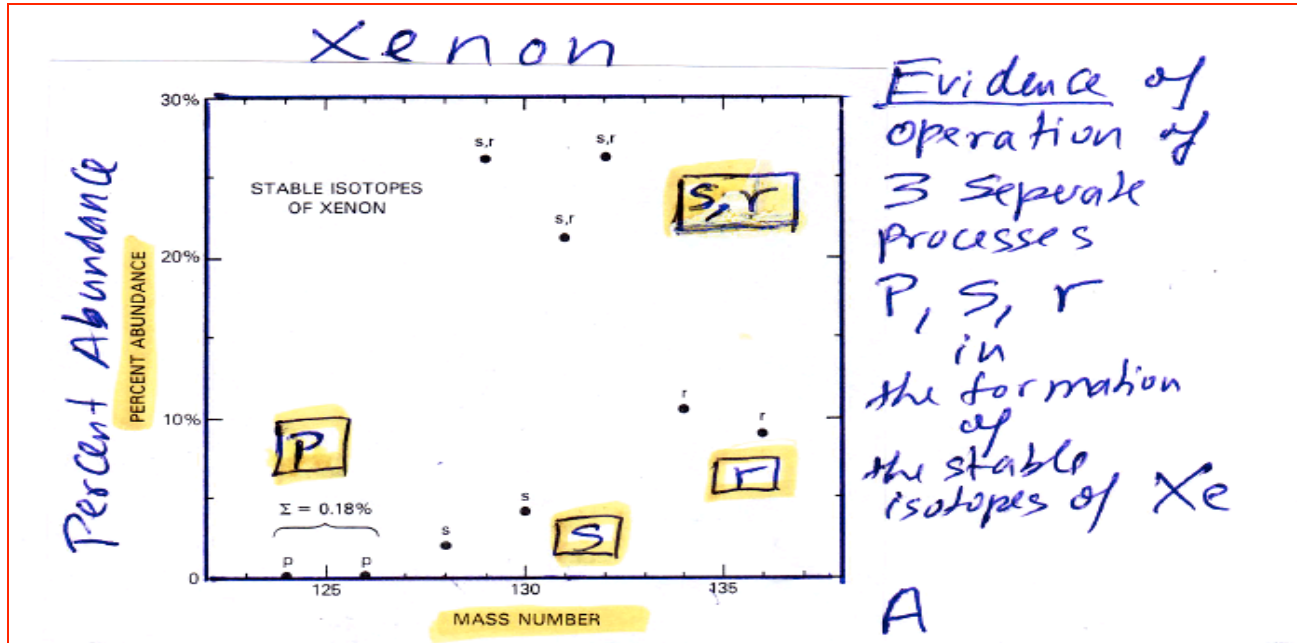 Xenon
Percent Abundance
PERCENT ABUNDANCE
30%
20%
10%
0
STABLE ISOTOPES
OF XENON
s,r
s,r
s,r
S,r
r
r
r
P
Σ = 0.18%
p
p
s
s
S
125
130
135
MASS NUMBER
Evidence of
operation of
3 Seperate
processes
P, S, r
in
the formation
of
the stable
isotopes of Xe
A